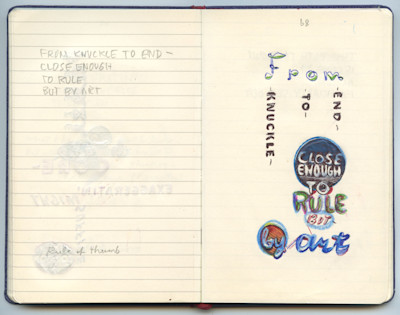 FROM KNUCKLE TO END -
CLOSE ENOUGH
TO RULE
BUT BY ART
Rule of thumb
68
From
KNUCKLE-
-TO-
-END-
CLOSE
ENOUGH
TO
RULE
BUT
by art